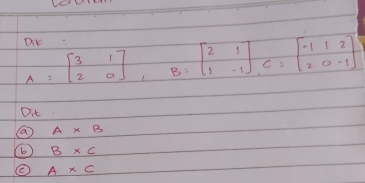 Dik :
A = [3 1
2 0], B = [2 1
1 -1], C = [-1 1 2
2 0 -1]
Dit
(a) A × B
(b) B × C
(c) A × C